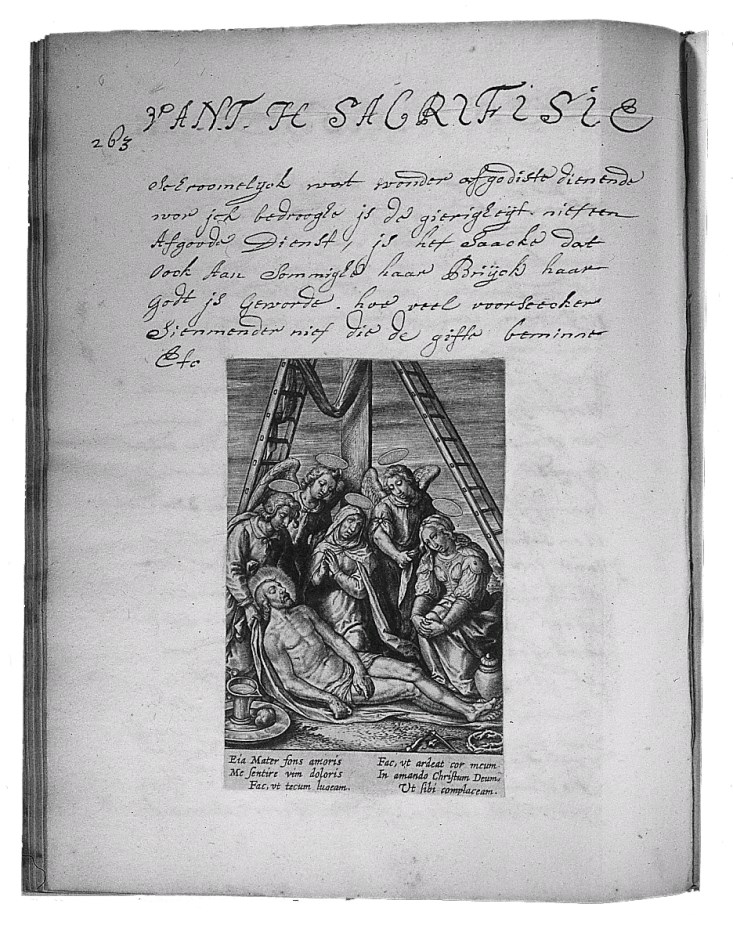 VANT. H SACRIFISIE
263
Schroomelyck wat wonder afgodiste dienende
wor ick bedrooghe is de gierigheyt. niet een
Afgoode Dienst, is het Saacke dat
Ook Aan Sommighe haar Briijck haar
Godt is Geworde. hoe veel voorseecker
Sienmender niet die de gifte beminne
Etc
Eia Mater fons amoris
Me sentire vim doloris
Fac, vt tecum lugeam.
Fac, vt ardeat cor meum
In amando Christum Deum,
Ut sibi complaceam.